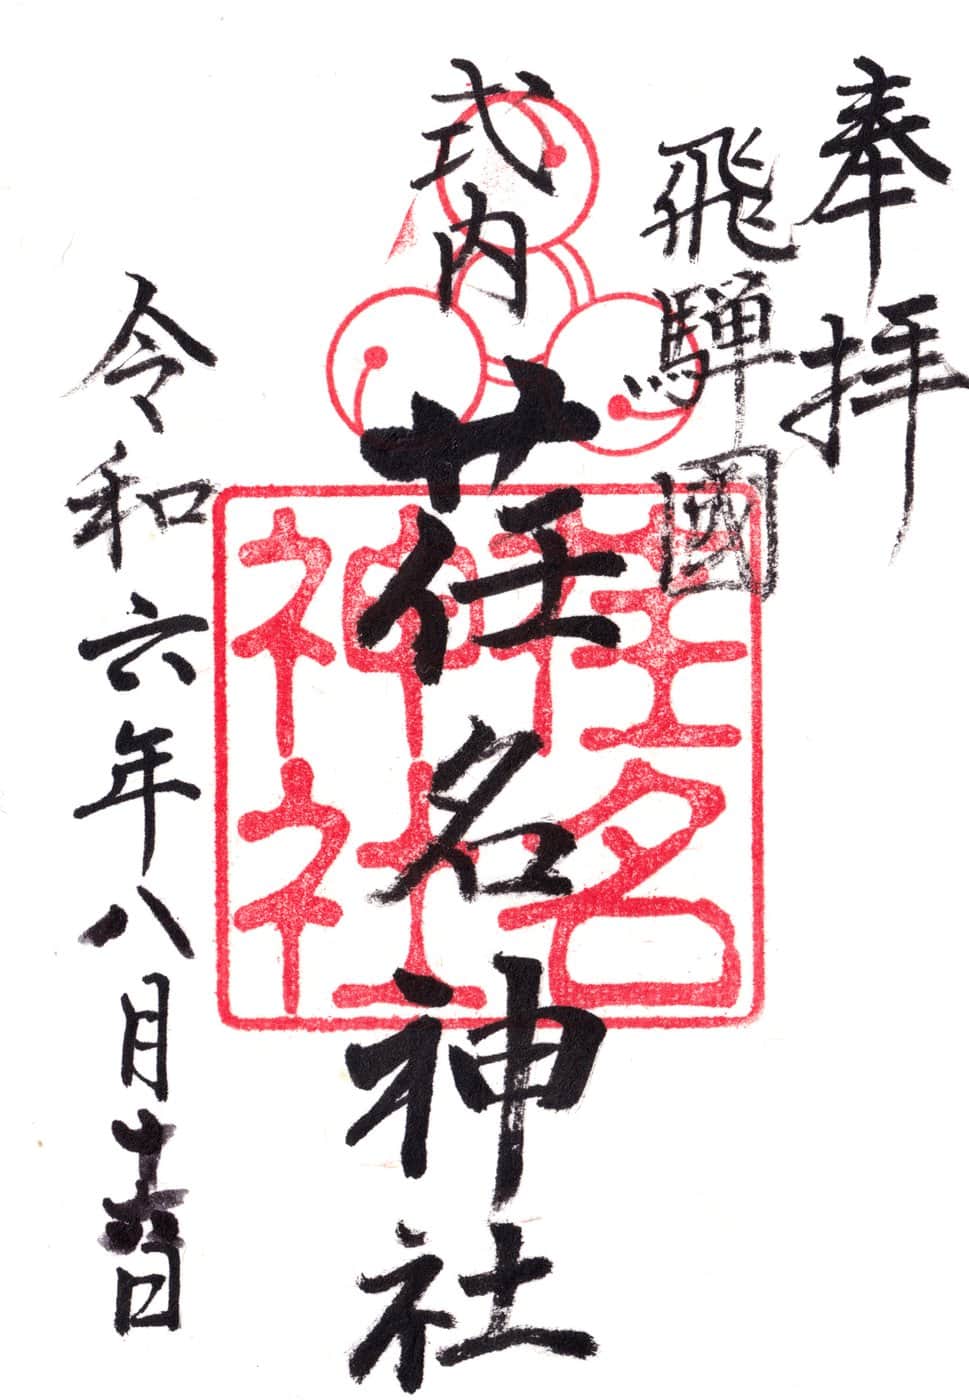 奉拝
飛騨國
式内 荏名神社
令和六年八月十六日
荏名神社